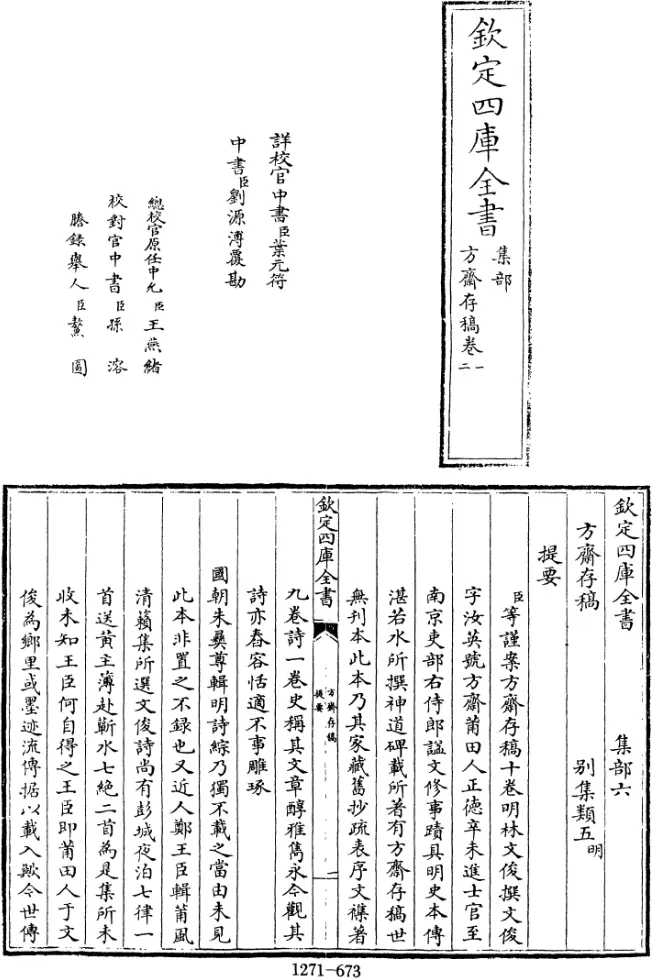 欽定四庫全書
集部
方齋存稿卷一
二
詳校官中書臣葉元符
中書臣劉源溥覆勘
總校官原任中允臣王燕緒
校對官中書臣孫溶
謄錄舉人臣鰲圖
欽定四庫全書 集部六
方齋存稿 別集類五明
提要
臣等謹案方齋存稿十卷明林文俊撰文俊
字汝英號方齋莆田人正德辛未進士官至
南京吏部右侍郎諡文修事蹟具明史本傳
湛若水所撰神道碑載所著有方齋存稿世
無刊本此本乃其家藏舊抄疏表序文襍著
欽定四庫全書
方齋存稿
提要
一
九卷詩一卷史稱其文章醇雅雋永今觀其
詩亦舂容恬適不事雕琢
國朝朱彝尊輯明詩綜乃獨不載之當由未見
此本非置之不錄也又近人鄭王臣輯莆風
清籟集所選文俊詩尚有彭城夜泊七律一
首送黃主薄赴蘄水七絕二首為是集所未
收未知王臣何自得之王臣即莆田人于文
俊為鄉里或墨迹流傳据以載入歟今世傳
1271-673